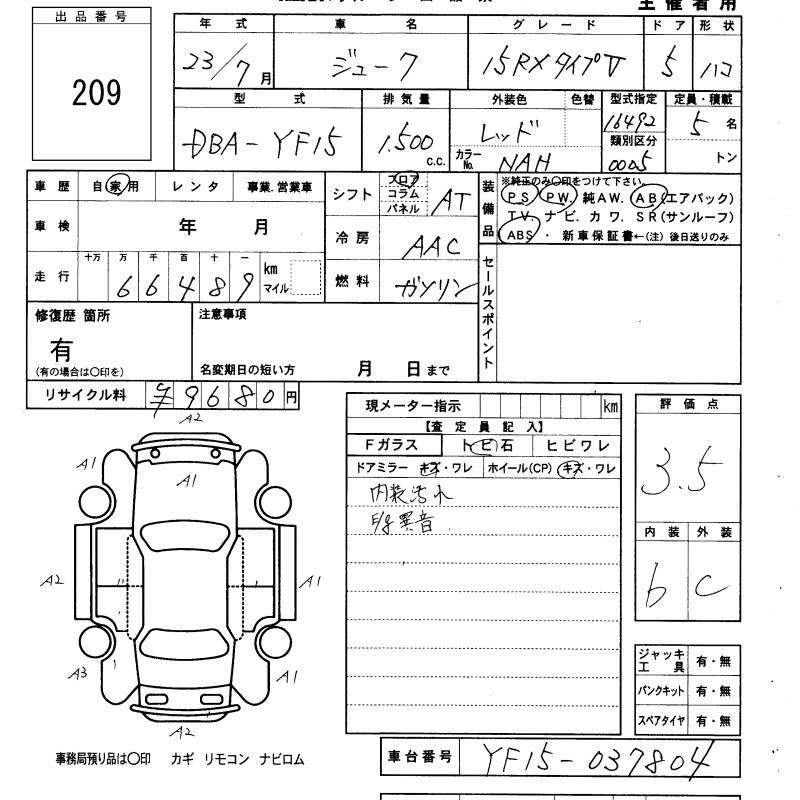 主催者用
出品番号
209
年式 車名 グレード ドア 形状
23/7月 ジューク 15RXタイプV 5 ハコ
型式 排気量 外装色 色替 型式指定 定員・積載
DBA-YF15 1.500 c.c. レッド 16492 5名
カラーNo. NAH 類別区分 0005 トン
車歴 自家用 レンタ 事業.営業車
シフト フロア コラム パネル AT
装備品 ※純正のみ〇印をつけて下さい。
PS PW. 純AW. AB(エアバック)
TV. ナビ. カワ. SR(サンルーフ)
ABS・新車保証書←(注) 後日送りのみ
車検 年 月
冷房 AAC
走行 十万 万 千 百 十 一
66489 km マイル
燃料 ガソリン
セールスポイント
修復歴 箇所
有
(有の場合は〇印を)
注意事項
名変期日の短い方 月 日まで
リサイクル料 ¥9680円
現メーター指示 km
【査定員記入】
Fガラス トビ石 ヒビワレ
ドアミラー キズ・ワレ ホイール(CP) キズ・ワレ
内装汚れ
異音
評価点
3.5
内装 外装
b C
A2
A1
A1
A2
A1
A3
A1
A2
ジャッキ工具 有・無
パンクキット 有・無
スペアタイヤ 有・無
事務局預り品は〇印 カギ リモコン ナビロム
車台番号 YF15-037804